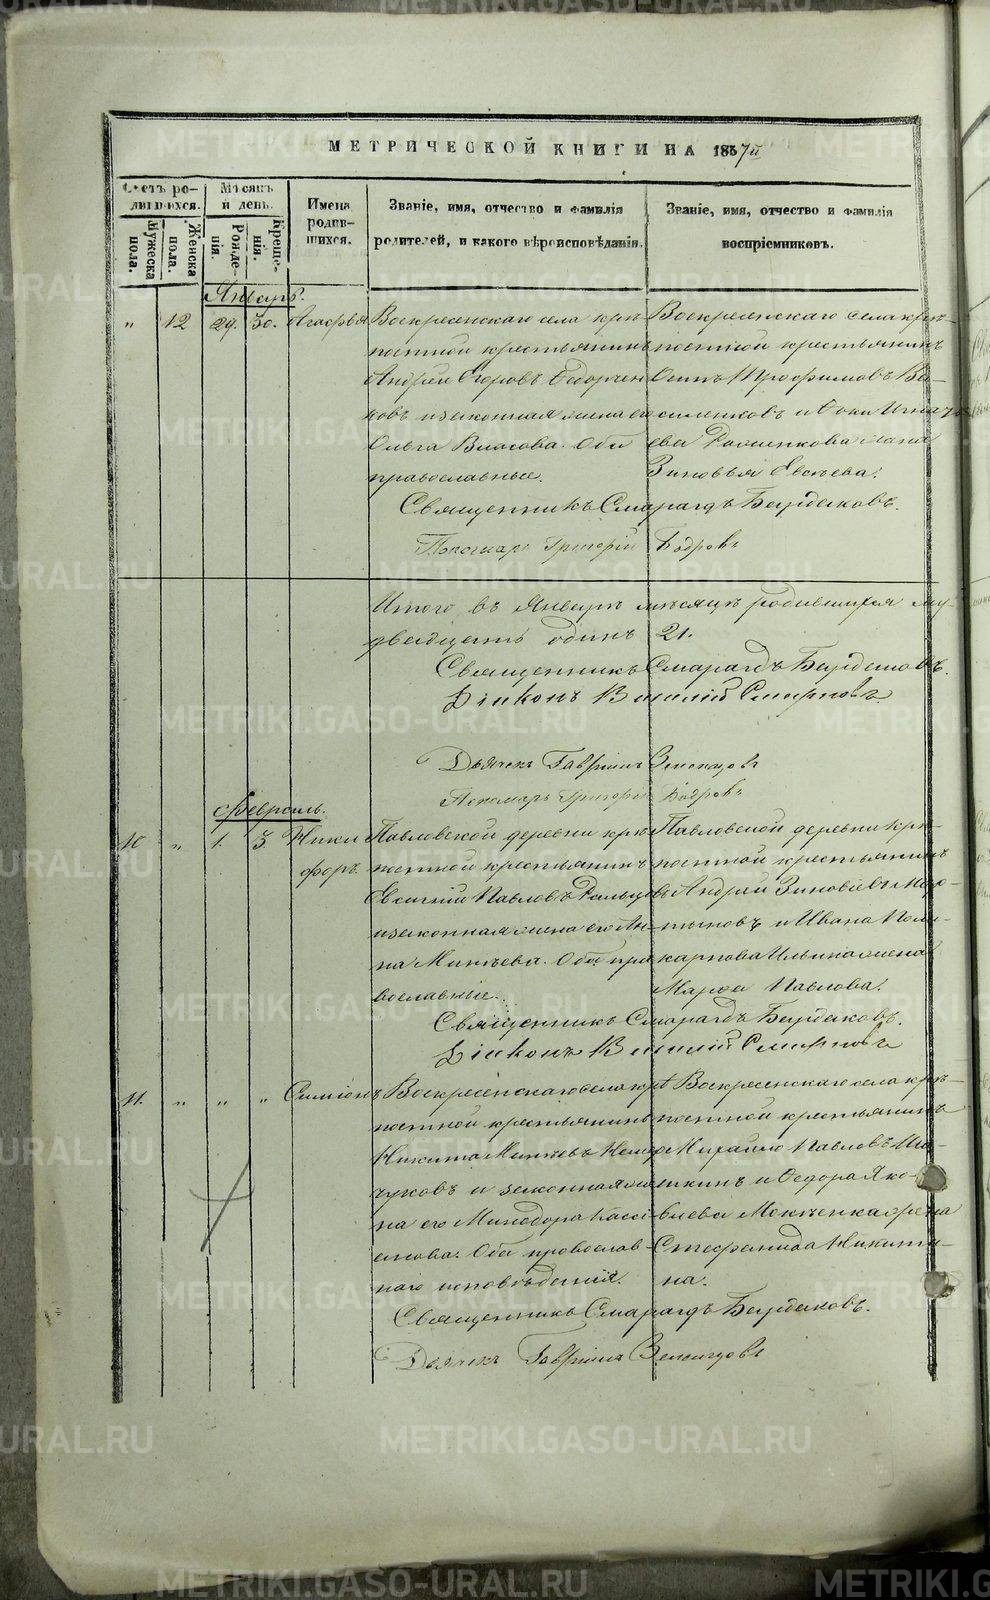 МЕТРИЧЕСКОЙ КНИГИ НА 1857й
Счетъ ро-
дившихся.
Мужеска
пола.
Женска
пола.
Мѣсяцъ
и день.
Рожде-
нія.
Креще-
нія.
Имена
родив-
шихся.
Званіе, имя, отчество и фамилія
родителей, и какого вѣроисповѣданія.
Званіе, имя, отчество и фамилія
воспріемниковъ.
Январь.
" 12 29. 30. Агафья
Воскресенскаго села крѣ-
постной крестьянинъ
Андрей Егоровъ
ковъ и законная жена его
Ольга Власова. Оба
православные.
Воскресенскаго села крѣ-
постной крестьянинъ
Осипъ Трофимовъ Ва-
силенковъ и Фоки Игнать-
ева Роменкова жена
Зиновья Евсѣева.
Священникъ Смарагдъ Бырдаковъ.
Пономарь Григорій Бодровъ
Итого въ Январѣ мѣсяцѣ родившихся
двадцать одинъ 21.
Священникъ Смарагдъ Бырдаковъ.
Діаконъ Василій Смирновъ
Дьячекъ Гавріилъ
Пономарь Григорій Бодровъ
Февраль.
10 " 1. 3 Ники
форъ.
Павловской деревни крѣ-
постной крестьянинъ
Евсигній Павловъ
и законная жена его Ан-
на Минѣева. Оба пра-
вославные.
Павловской деревни крѣ-
постной крестьянинъ
Андрей Зиновіевъ Мар-
тыновъ и Ивана Поли-
карпова Ильина жена
Марѳа Павлова.
Священникъ Смарагдъ Бырдаковъ.
Діаконъ Василій Смирновъ
11. " " " Симіонъ
Воскресенскаго села крѣ-
постной крестьянинъ
Никита Минѣевъ
чуковъ и законная же-
на его Минодора Касси-
анова. Оба православ-
наго исповѣданія.
Воскресенскаго села крѣ-
постной крестьянинъ
Михайло Павловъ
шкинъ и Ѳедора Яко-
влева жена
Стефанида Никити-
на.
Священникъ Смарагдъ Бырдаковъ.
Дьячекъ Гавріилъ
METRIKI.GASO-URAL.RU